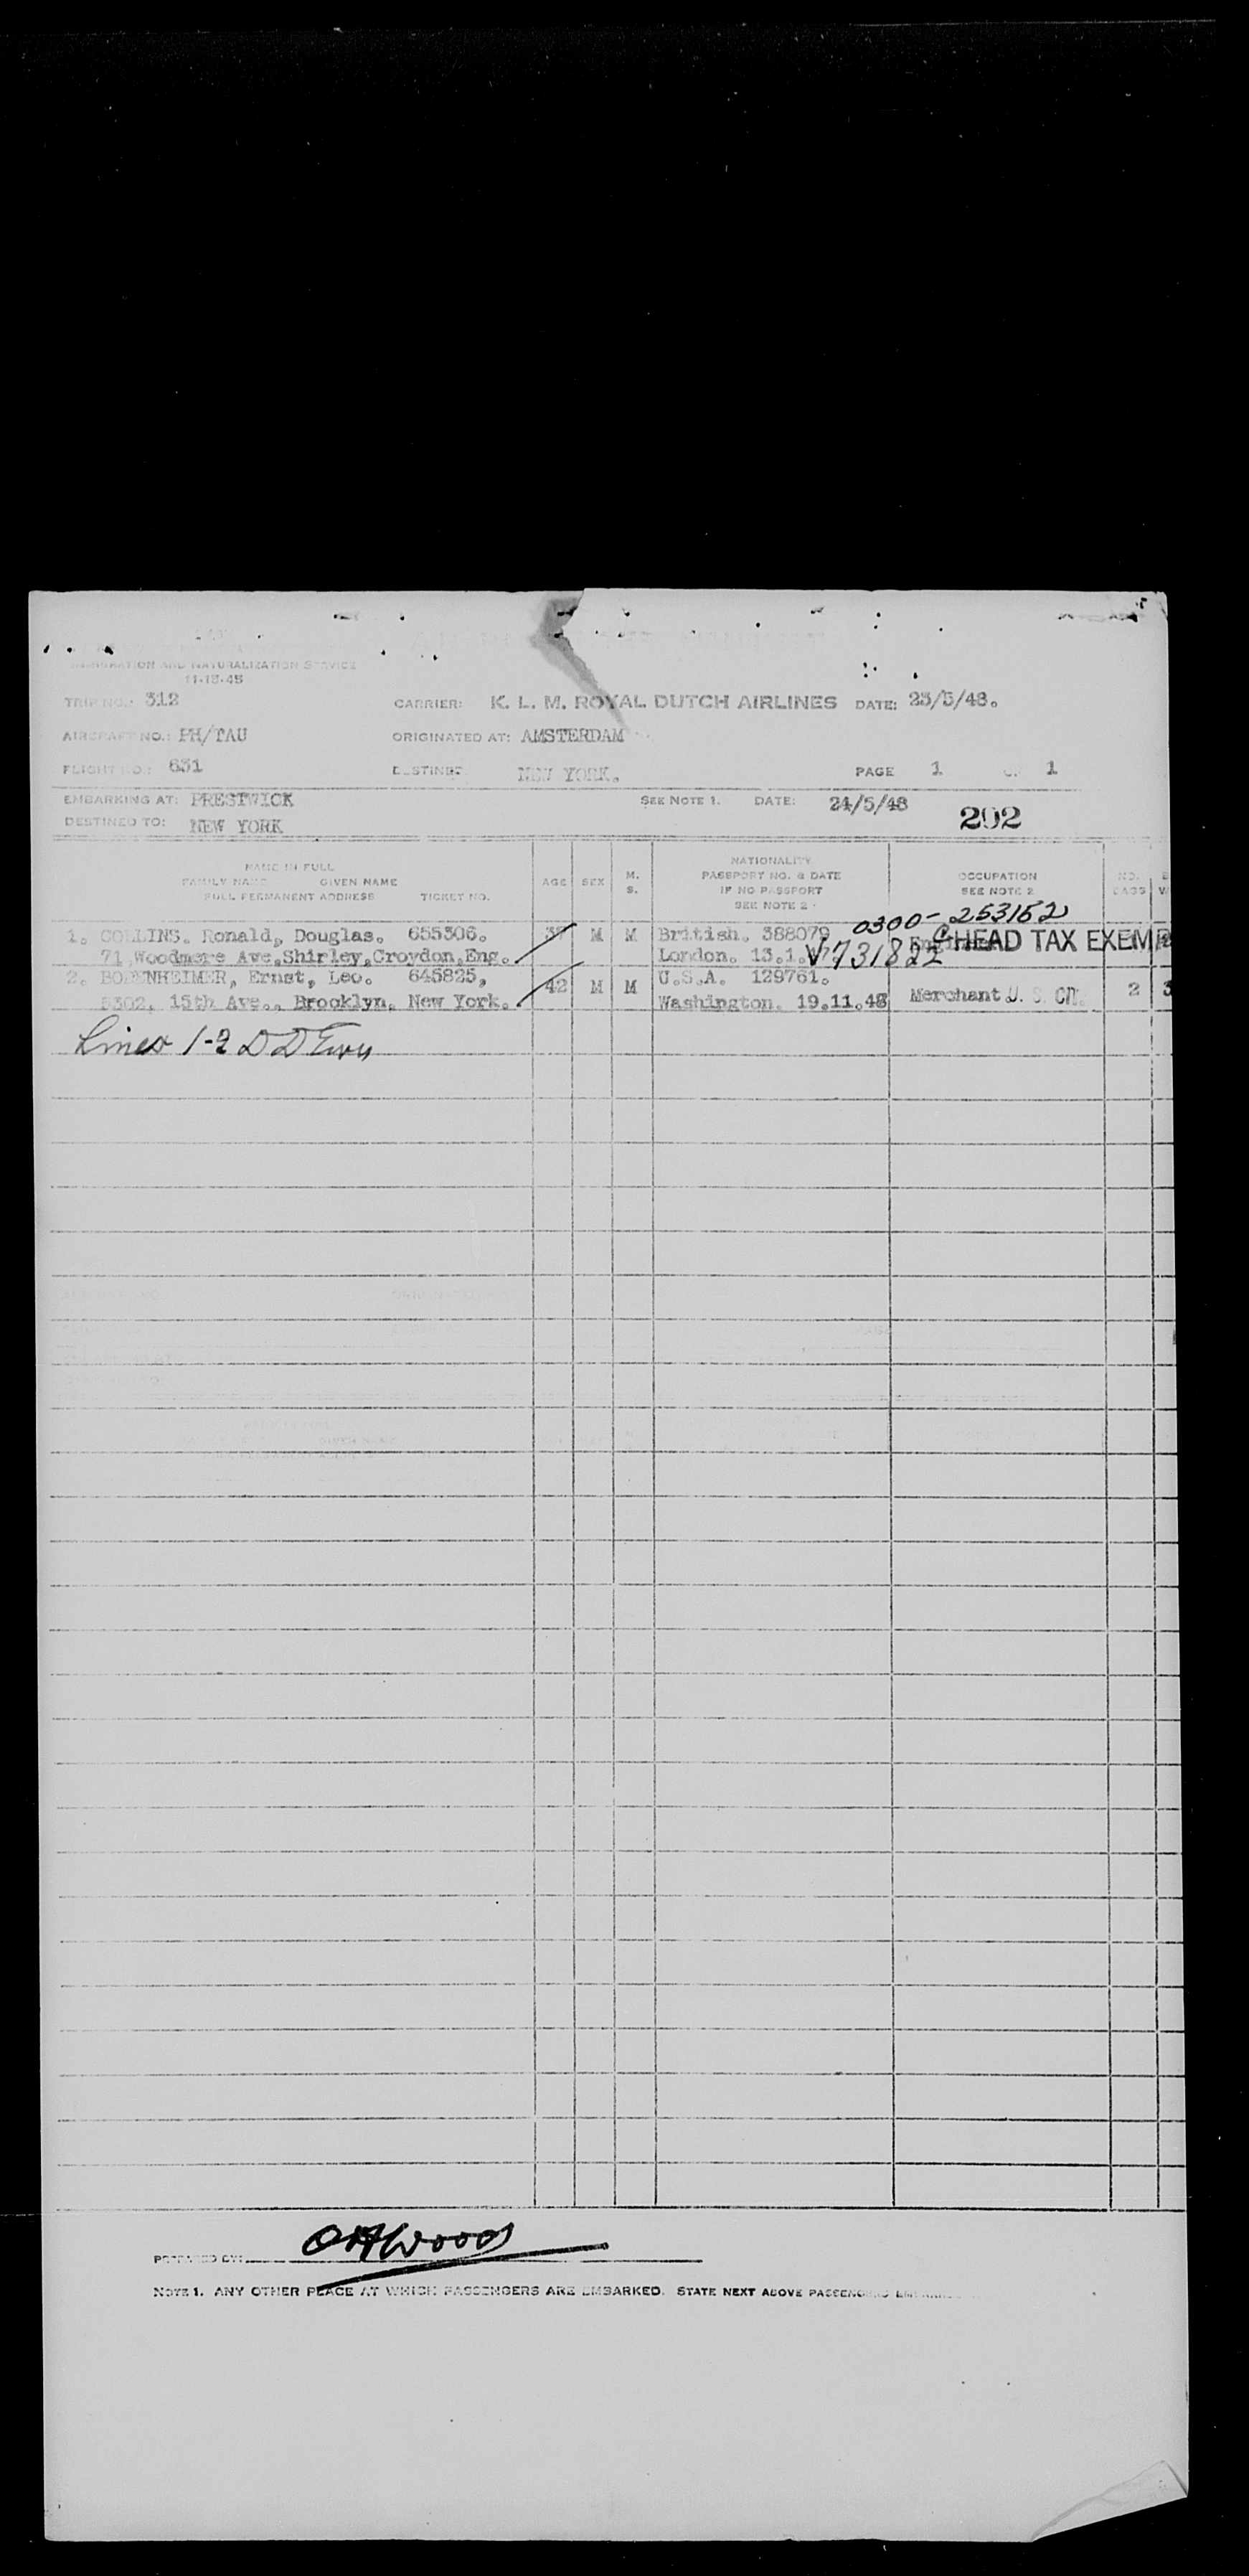 IMMIGRATION AND NATURALIZATION SERVICE
11-15-45
TRIP NO.: 312 CARRIER: K. L. M. ROYAL DUTCH AIRLINES DATE: 23/5/48.
AIRCRAFT NO.: PH/TAU ORIGINATED AT: AMSTERDAM
FLIGHT NO.: 631 DESTINED NEW YORK. PAGE 1 OF 1
EMBARKING AT: PRESTWICK SEE NOTE 1. DATE: 24/5/48
DESTINED TO: NEW YORK 292
NAME IN FULL
FAMILY NAME GIVEN NAME
FULL PERMANENT ADDRESS TICKET NO.
AGE SEX M. S.
NATIONALITY
PASSPORT NO. & DATE
IF NO PASSPORT
SEE NOTE 2
OCCUPATION
SEE NOTE 2
NO. BAGS
0300-253152
1. COLLINS. Ronald, Douglas. 655306. 37 M M British. 388079 HEAD TAX EXEMP
71,Woodmere Ave,Shirley,Croydon,Eng. London. 13.1. V731822
2. BODENHEIMER, Ernst, Leo. 645825, 42 M M U.S.A. 129761.
5302, 15th Ave., Brooklyn. New York. Washington. 19.11.48 Merchant U. S. CIT. 2 3
Lines 1-2
PREPARED BY: OHWoods
NOTE 1. ANY OTHER PLACE AT WHICH PASSENGERS ARE EMBARKED. STATE NEXT ABOVE PASSENGERS